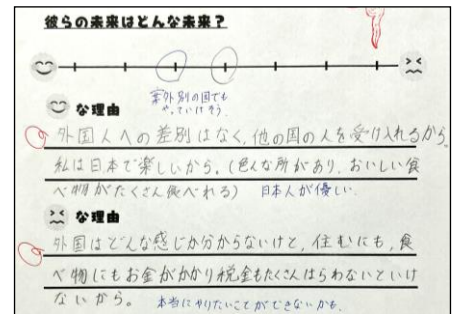 彼らの未来はどんな未来？
案外別の国でも
やっていけそう。
な理由
外国人への差別はなく、他の国の人を受け入れるから。
私は日本で楽しいから。(色んな所があり、おいしい食
べ物がたくさん食べれる) 日本人が優しい。
な理由
外国はどんな感じか分からないけど、住むにも、食
べ物にもお金がかかり税金もたくさんはらわないといけ
ないから。 本当にやりたいことができないかも。